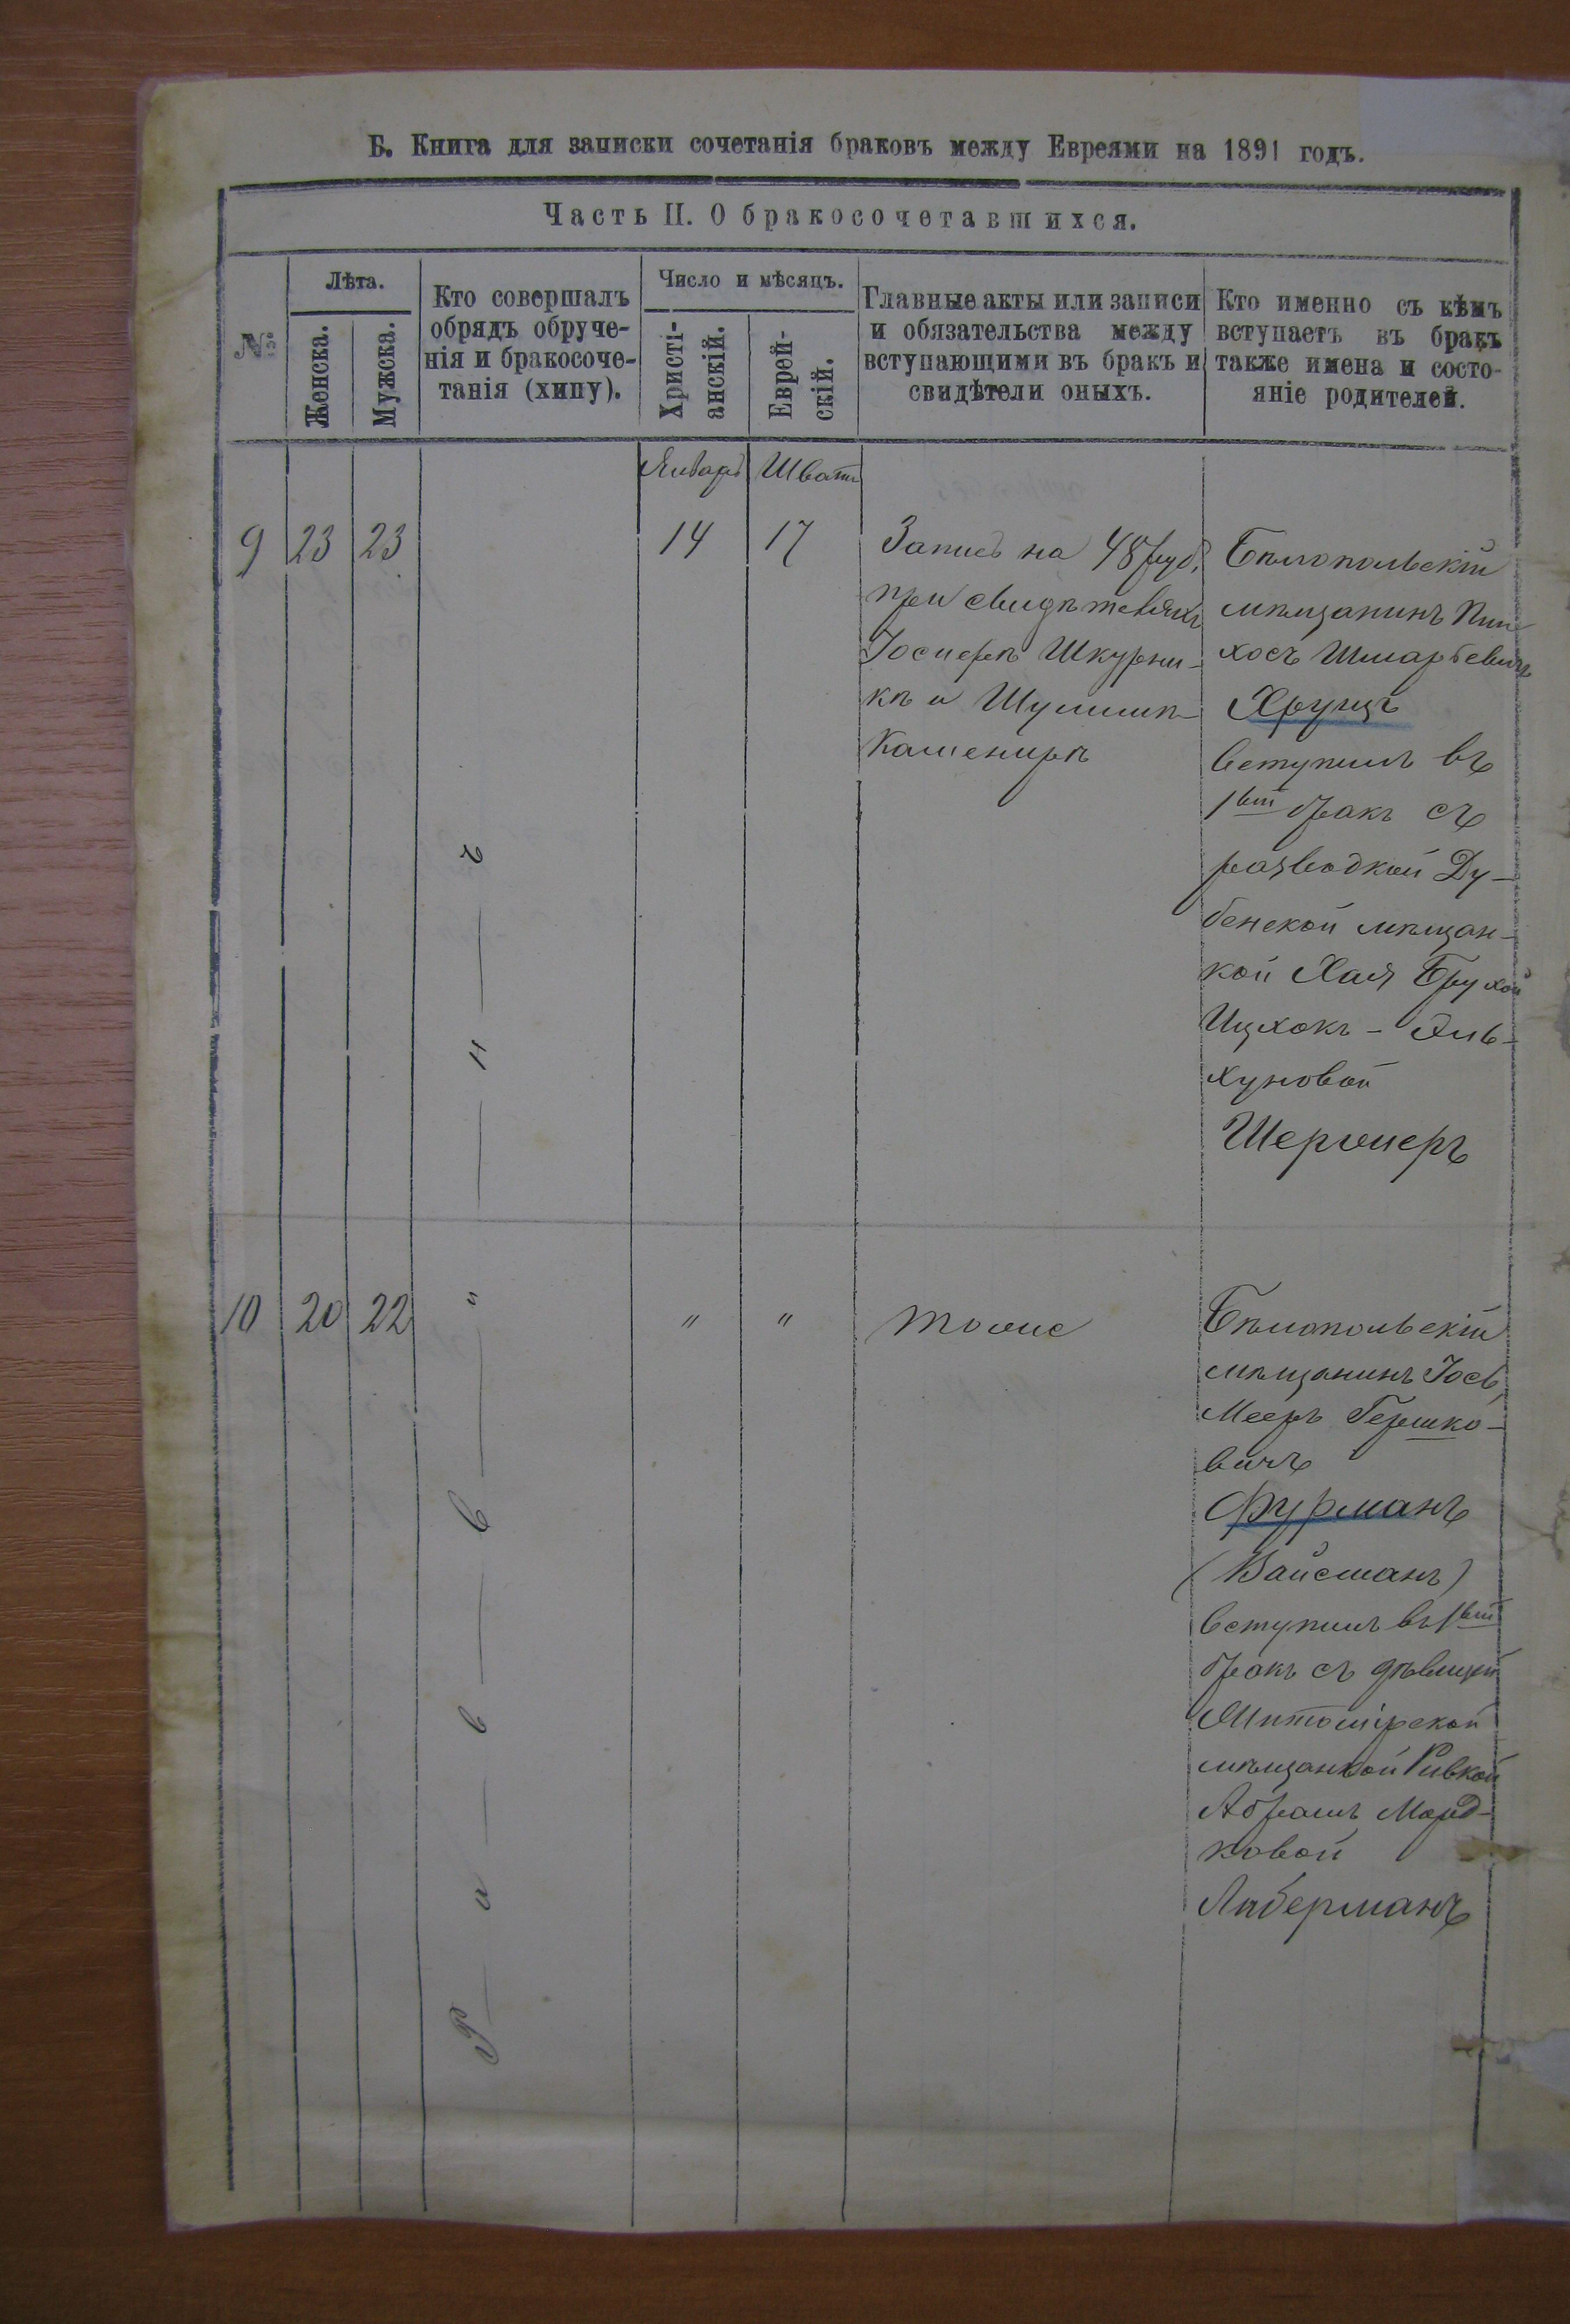 Б. Книга для записки сочетанія браковъ между Евреями на 1891 годъ.
Часть II. О бракосочетавшихся.
№
Лѣта.
Женска.
Мужска.
Кто совершалъ
обрядъ обруче-
нія и бракосоче-
танія (хипу).
Число и мѣсяцъ.
Христі-
анскій.
Еврей-
скій.
Главные акты или записи
и обязательства между
вступающими въ бракъ и
свидѣтели оныхъ.
Кто именно съ кѣмъ
вступаетъ въ бракъ
также имена и состо-
яніе родителей.
Январь Шватъ
9 23 23 14 17
Запись на 48 руб.
при свидѣтеляхъ
Іосифѣ Шкурни-
кѣ и Шулимѣ
Кашенирѣ
Бѣлопольскій
мѣщанинъ Пин-
хосъ Шмарьевичъ
Хрунъ
вступилъ въ
1вый бракъ съ
разводкой Ду-
бенской мѣщан-
кой Хая Брухой
Ицхокъ - Эль-
хуновой
Шергмеръ
10 20 22 " " "
тоже
Бѣлопольскій
мѣщанинъ Іось
Мееръ Гершко-
вичъ
Фурманъ
(Вайсманъ)
вступилъ въ 1вый
бракъ съ дѣвицей
Житомірской
мѣщанкой Ривкой
Абрамъ Морд-
ковой
Либерманъ
Р — а — в — в — и — н — ъ